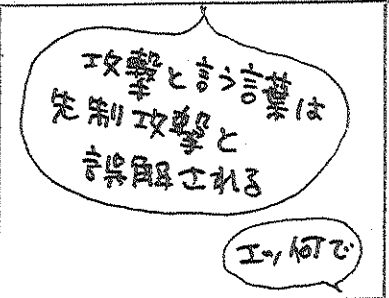 攻撃と言う言葉は
先制攻撃と
誤解される
エッ、何で